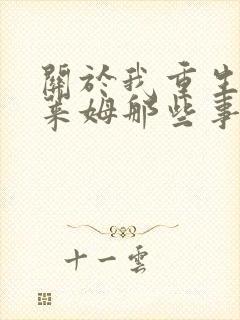 關於我重生
萊姆那些事
十一雲